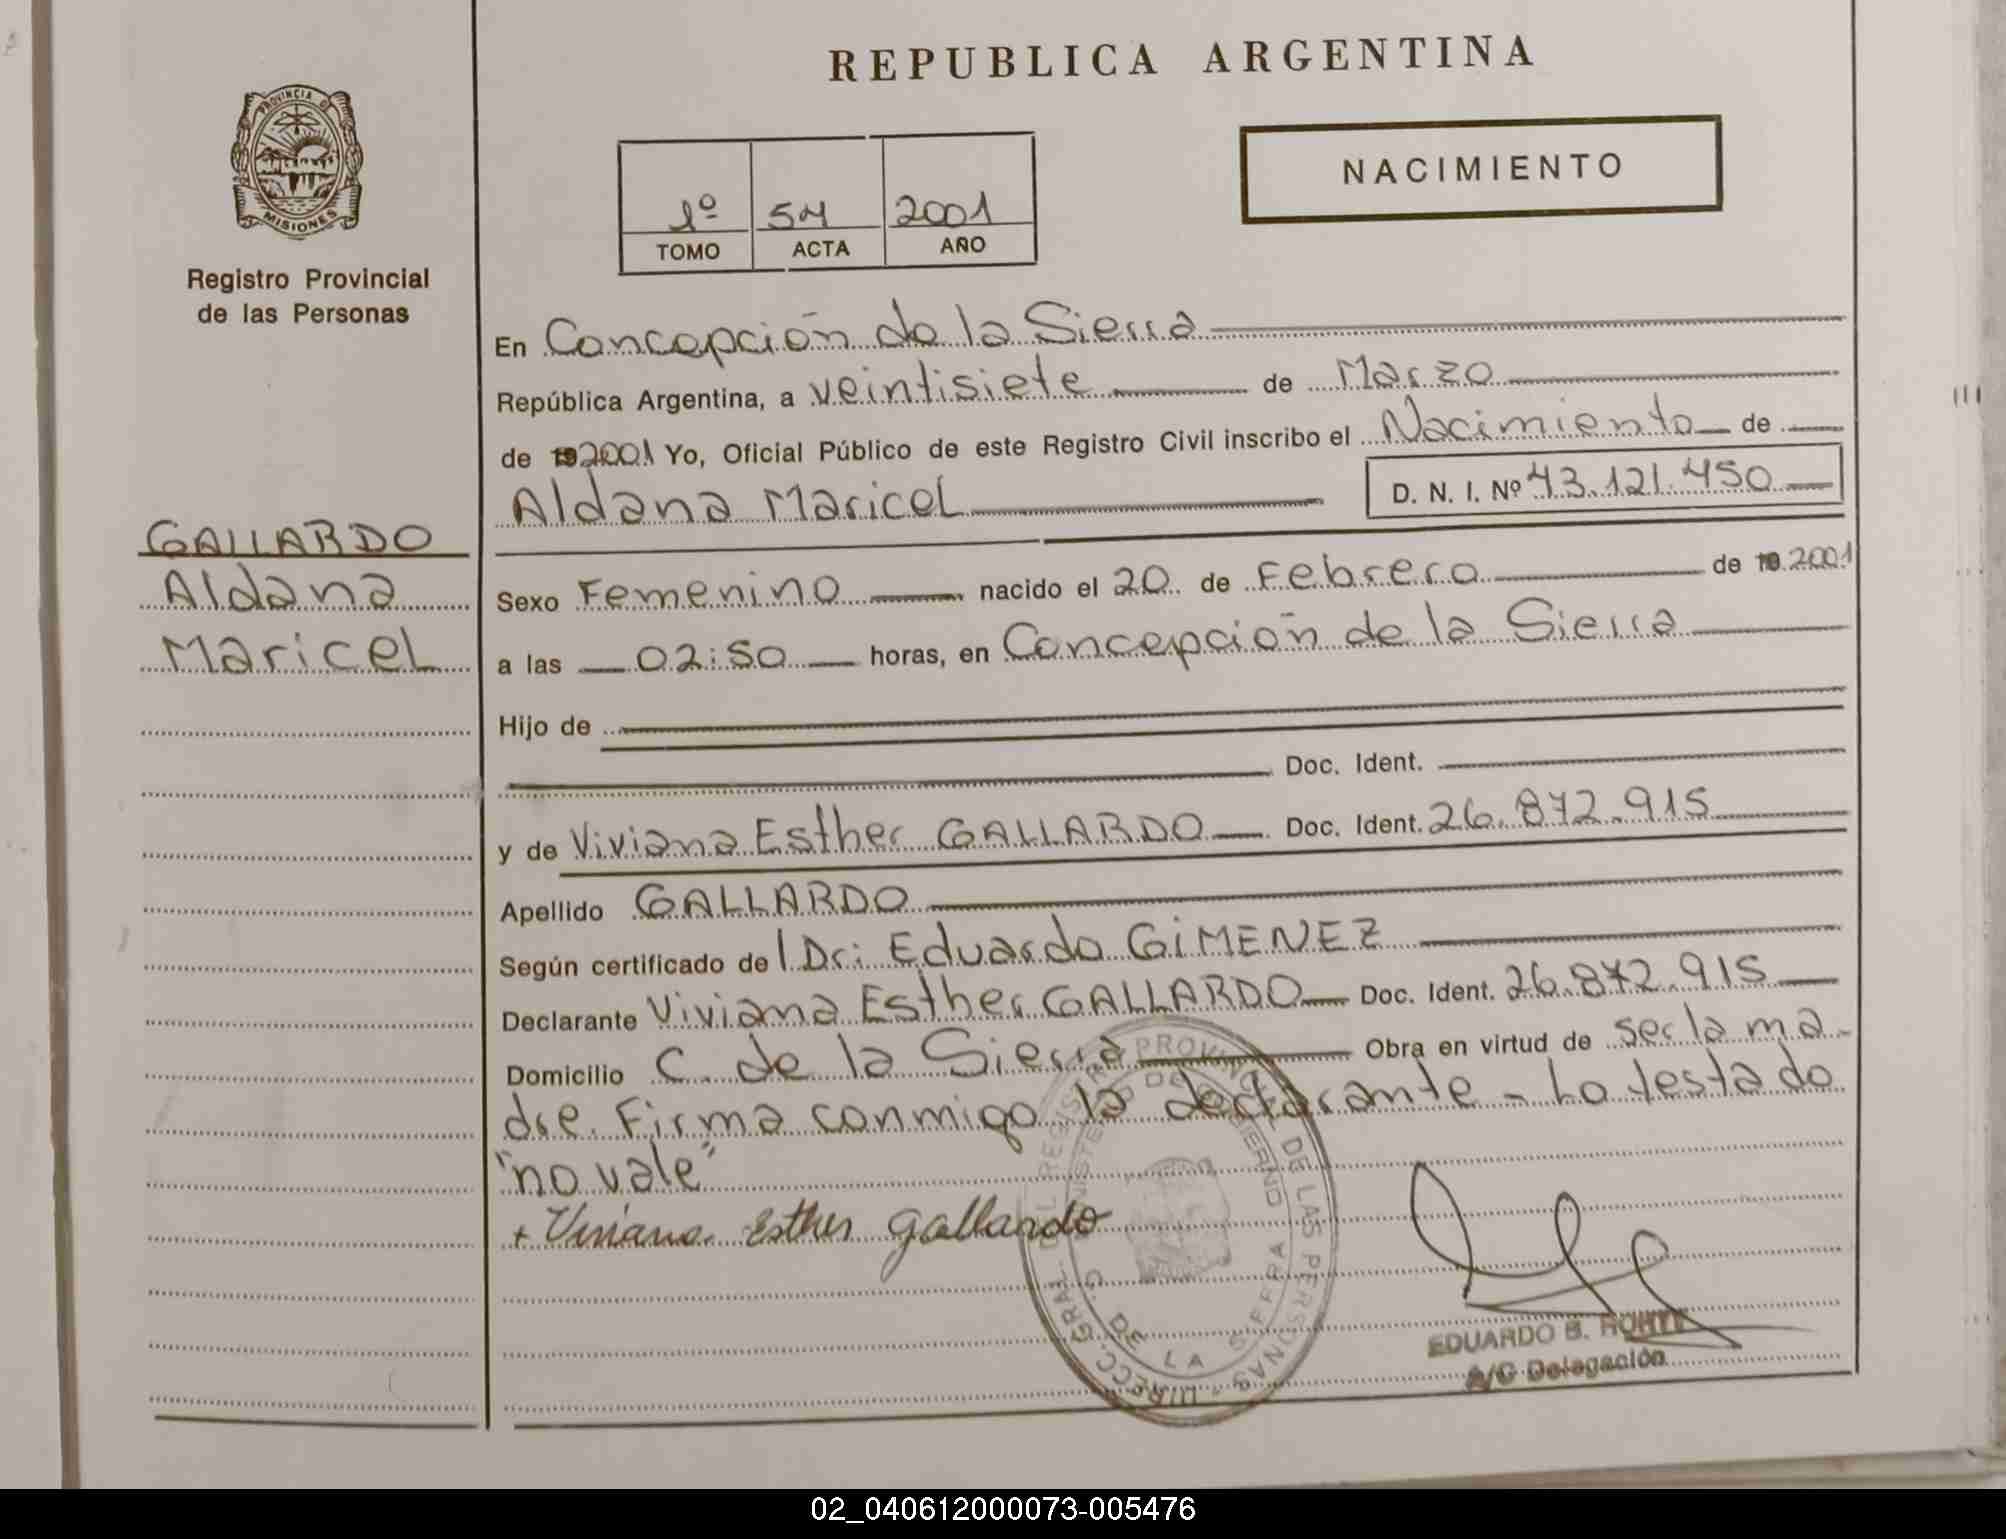 REPUBLICA ARGENTINA
PROVINCIA DE
MISIONES
Registro Provincial
de las Personas
NACIMIENTO
1º 54 2001
TOMO ACTA AÑO
En Concepción de la Sierra
República Argentina, a veintisiete de Marzo
de 192001 Yo, Oficial Público de este Registro Civil inscribo el Nacimiento de
Aldana Maricel D. N. I. Nº 43.121.450
GALLARDO
Aldana
Maricel
Sexo Femenino nacido el 20 de Febrero de 19 2001
a las 02:50 horas, en Concepción de la Sierra
Hijo de
Doc. Ident.
y de Viviana Esther GALLARDO Doc. Ident. 26.872.915
Apellido GALLARDO
Según certificado de l Dr: Eduardo GIMENEZ
Declarante Viviana Esther GALLARDO Doc. Ident. 26.872.915
Domicilio C. de la Sierra Obra en virtud de ser la ma-
dre. Firma conmigo la declarante - Lo testado
"no vale"
+ Viviana Esther Gallardo
DIRECC. GRAL. DEL REGISTRO PROVINCIAL DE LAS PERSONAS
MINISTERIO DE GOBIERNO
C. DE LA SIERRA
EDUARDO B.
A/C Delegación
02_040612000073-005476